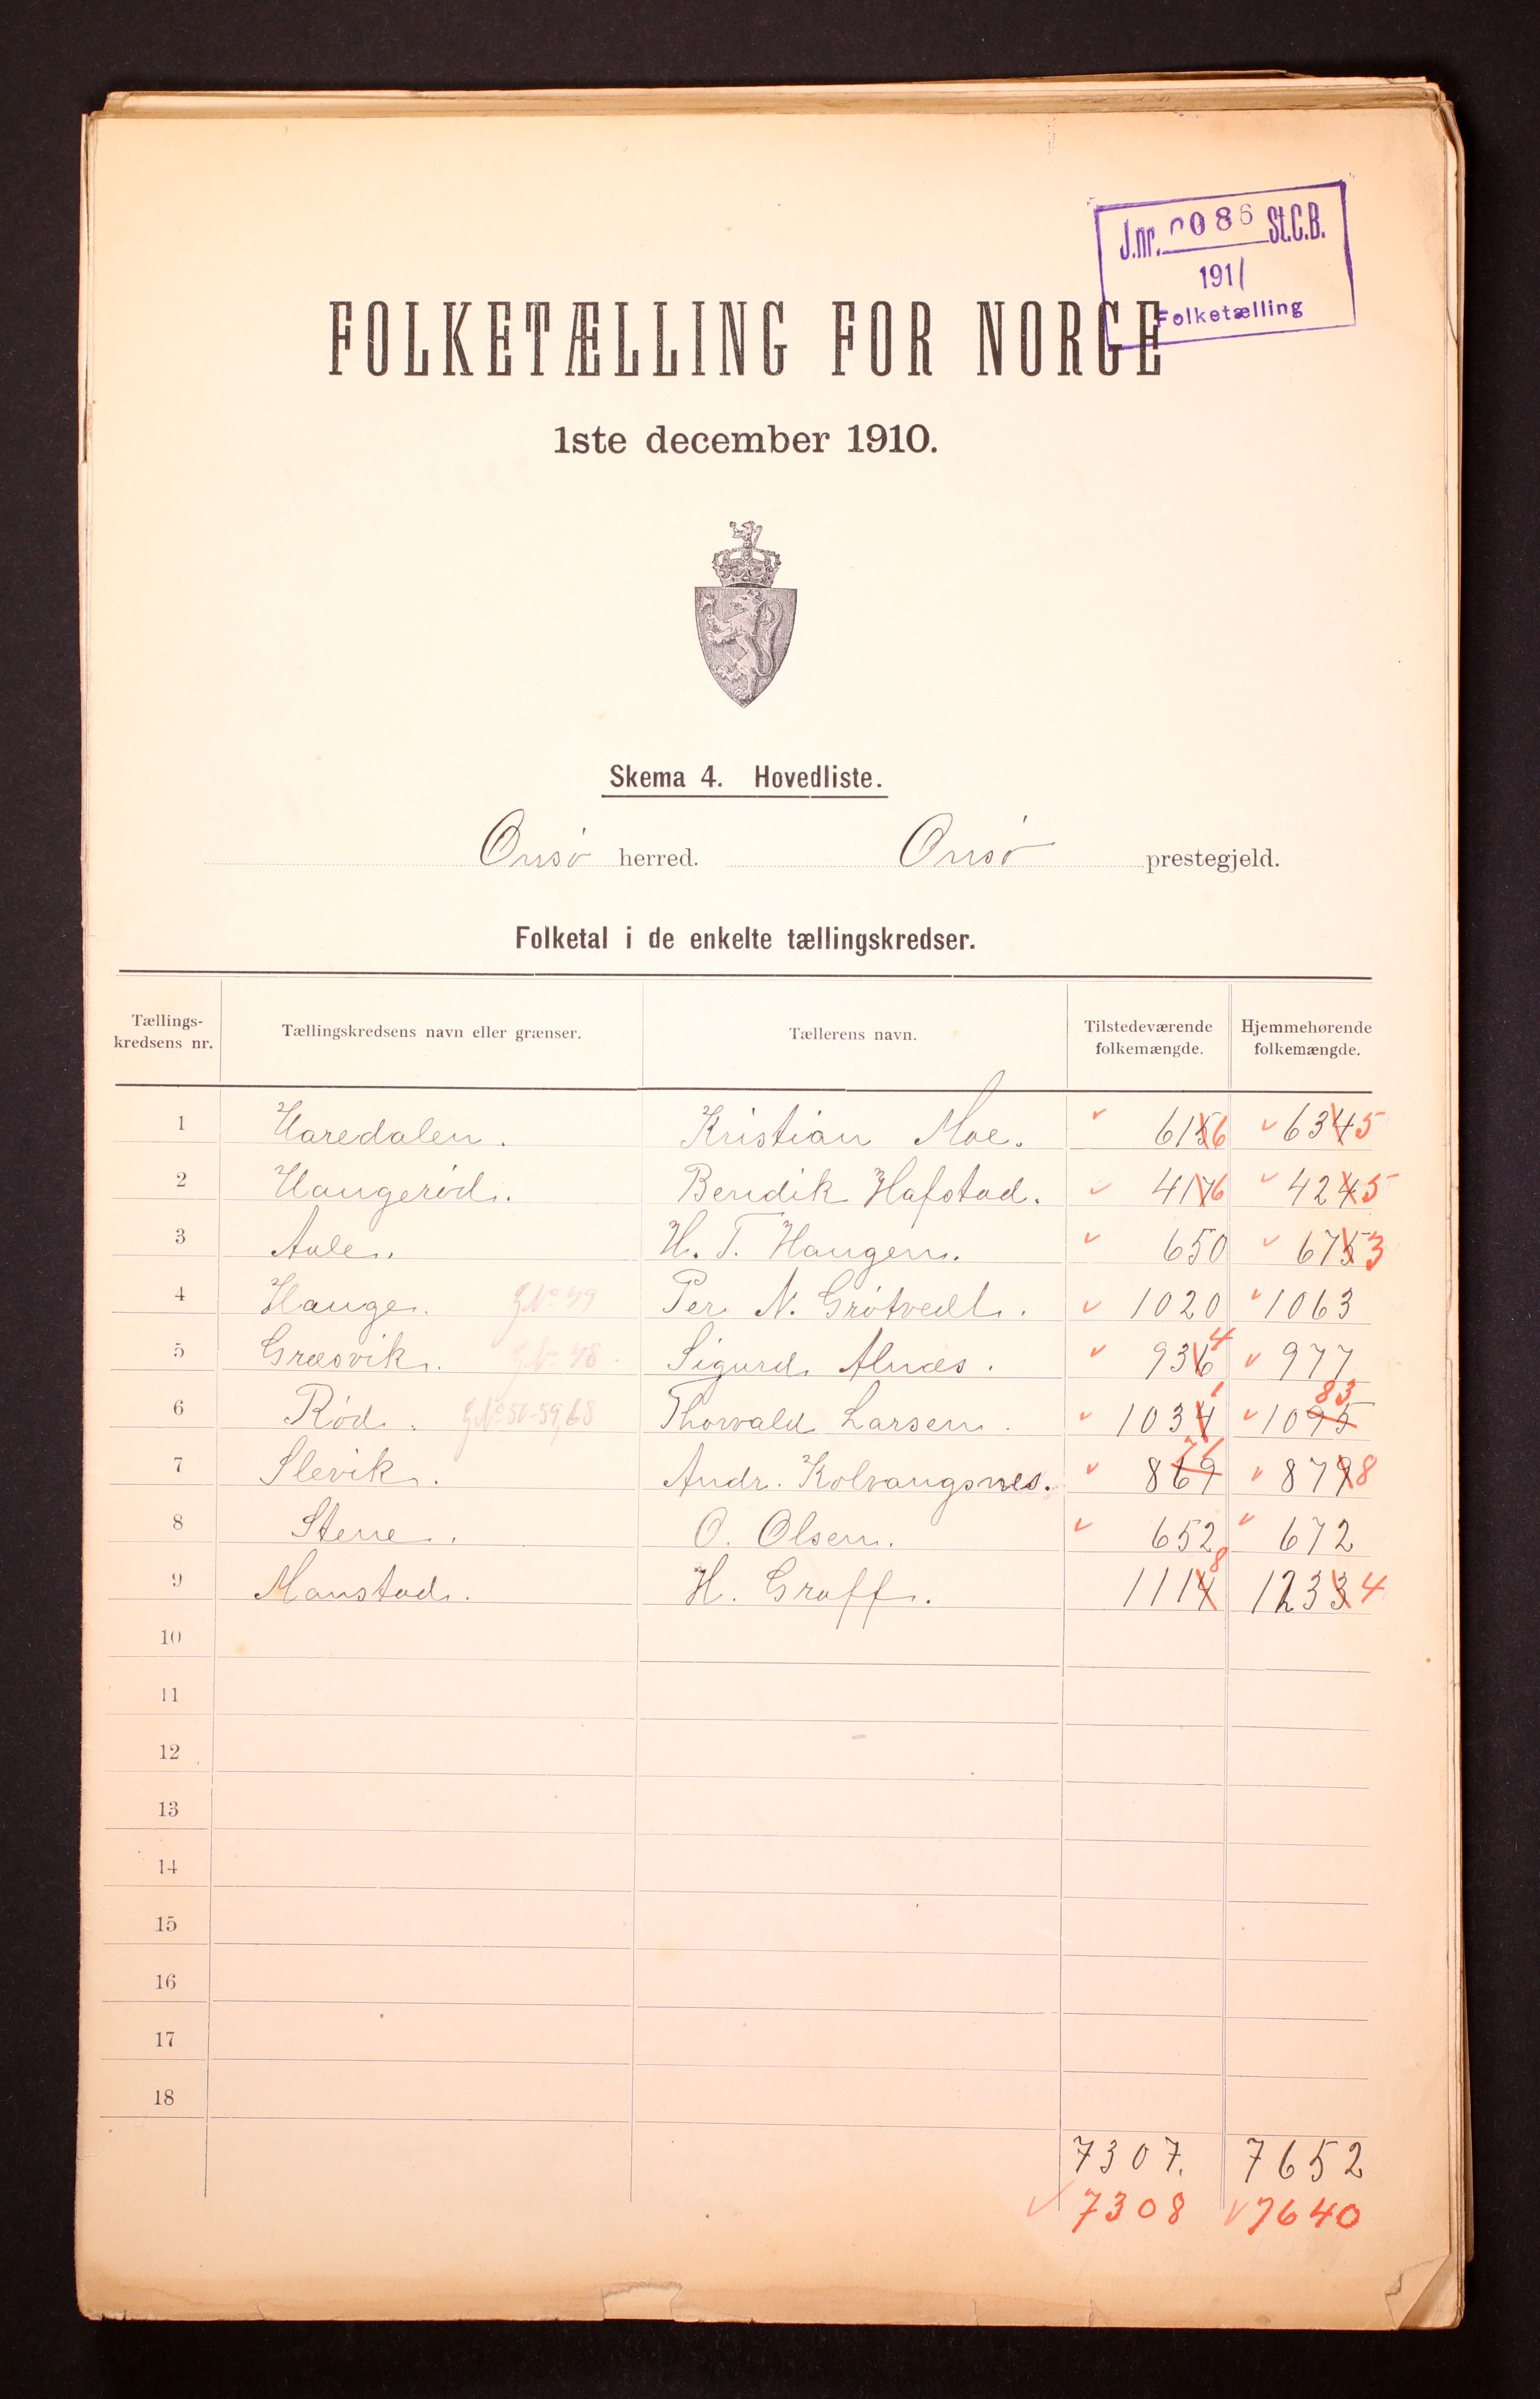 J.nr. 0086 St.C.B.
1911
Folketælling
FOLKETÆLLING FOR NORGE
1ste december 1910.
Skema 4. Hovedliste.
Onsø herred. Onsø prestegjeld.
Folketal i de enkelte tællingskredser.
Tællings-kredsens nr. Tællingskredsens navn eller grænser. Tællerens navn. Tilstedeværende folkemængde. Hjemmehørende folkemængde.
1 Haredalen. Kristian Moe. 615 6 634 5
2 Haugerød. Bendik Hafstad. 417 6 424 5
3 Aale. H. T. Haugen. 650 675 3
4 Hauge. G.No 49 Per N. Grøtvedt. 1020 1063
5 Græsvik. G.No 48. Sigurd Alnæs. 936 4 977
6 Rød. G.No 50-59,68 Thorvald Larsen. 1034 1 1095 83
7 Slevik. Andr. Kolvangsnes. 869 71 879 8
8 Stene. O. Olsen. 652 672
9 Manstad. H. Graff. 1114 8 1233 4
10
11
12
13
14
15
16
17
18
7307. 7652
7308 7640